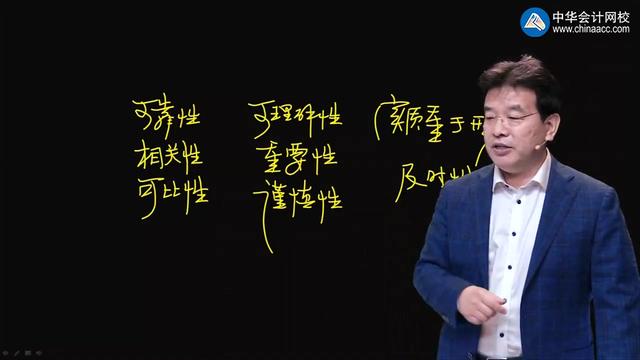 中华会计网校
www.chinaacc.com
可靠性 可理解性 实质重于形
相关性 重要性 及时性
可比性 谨慎性